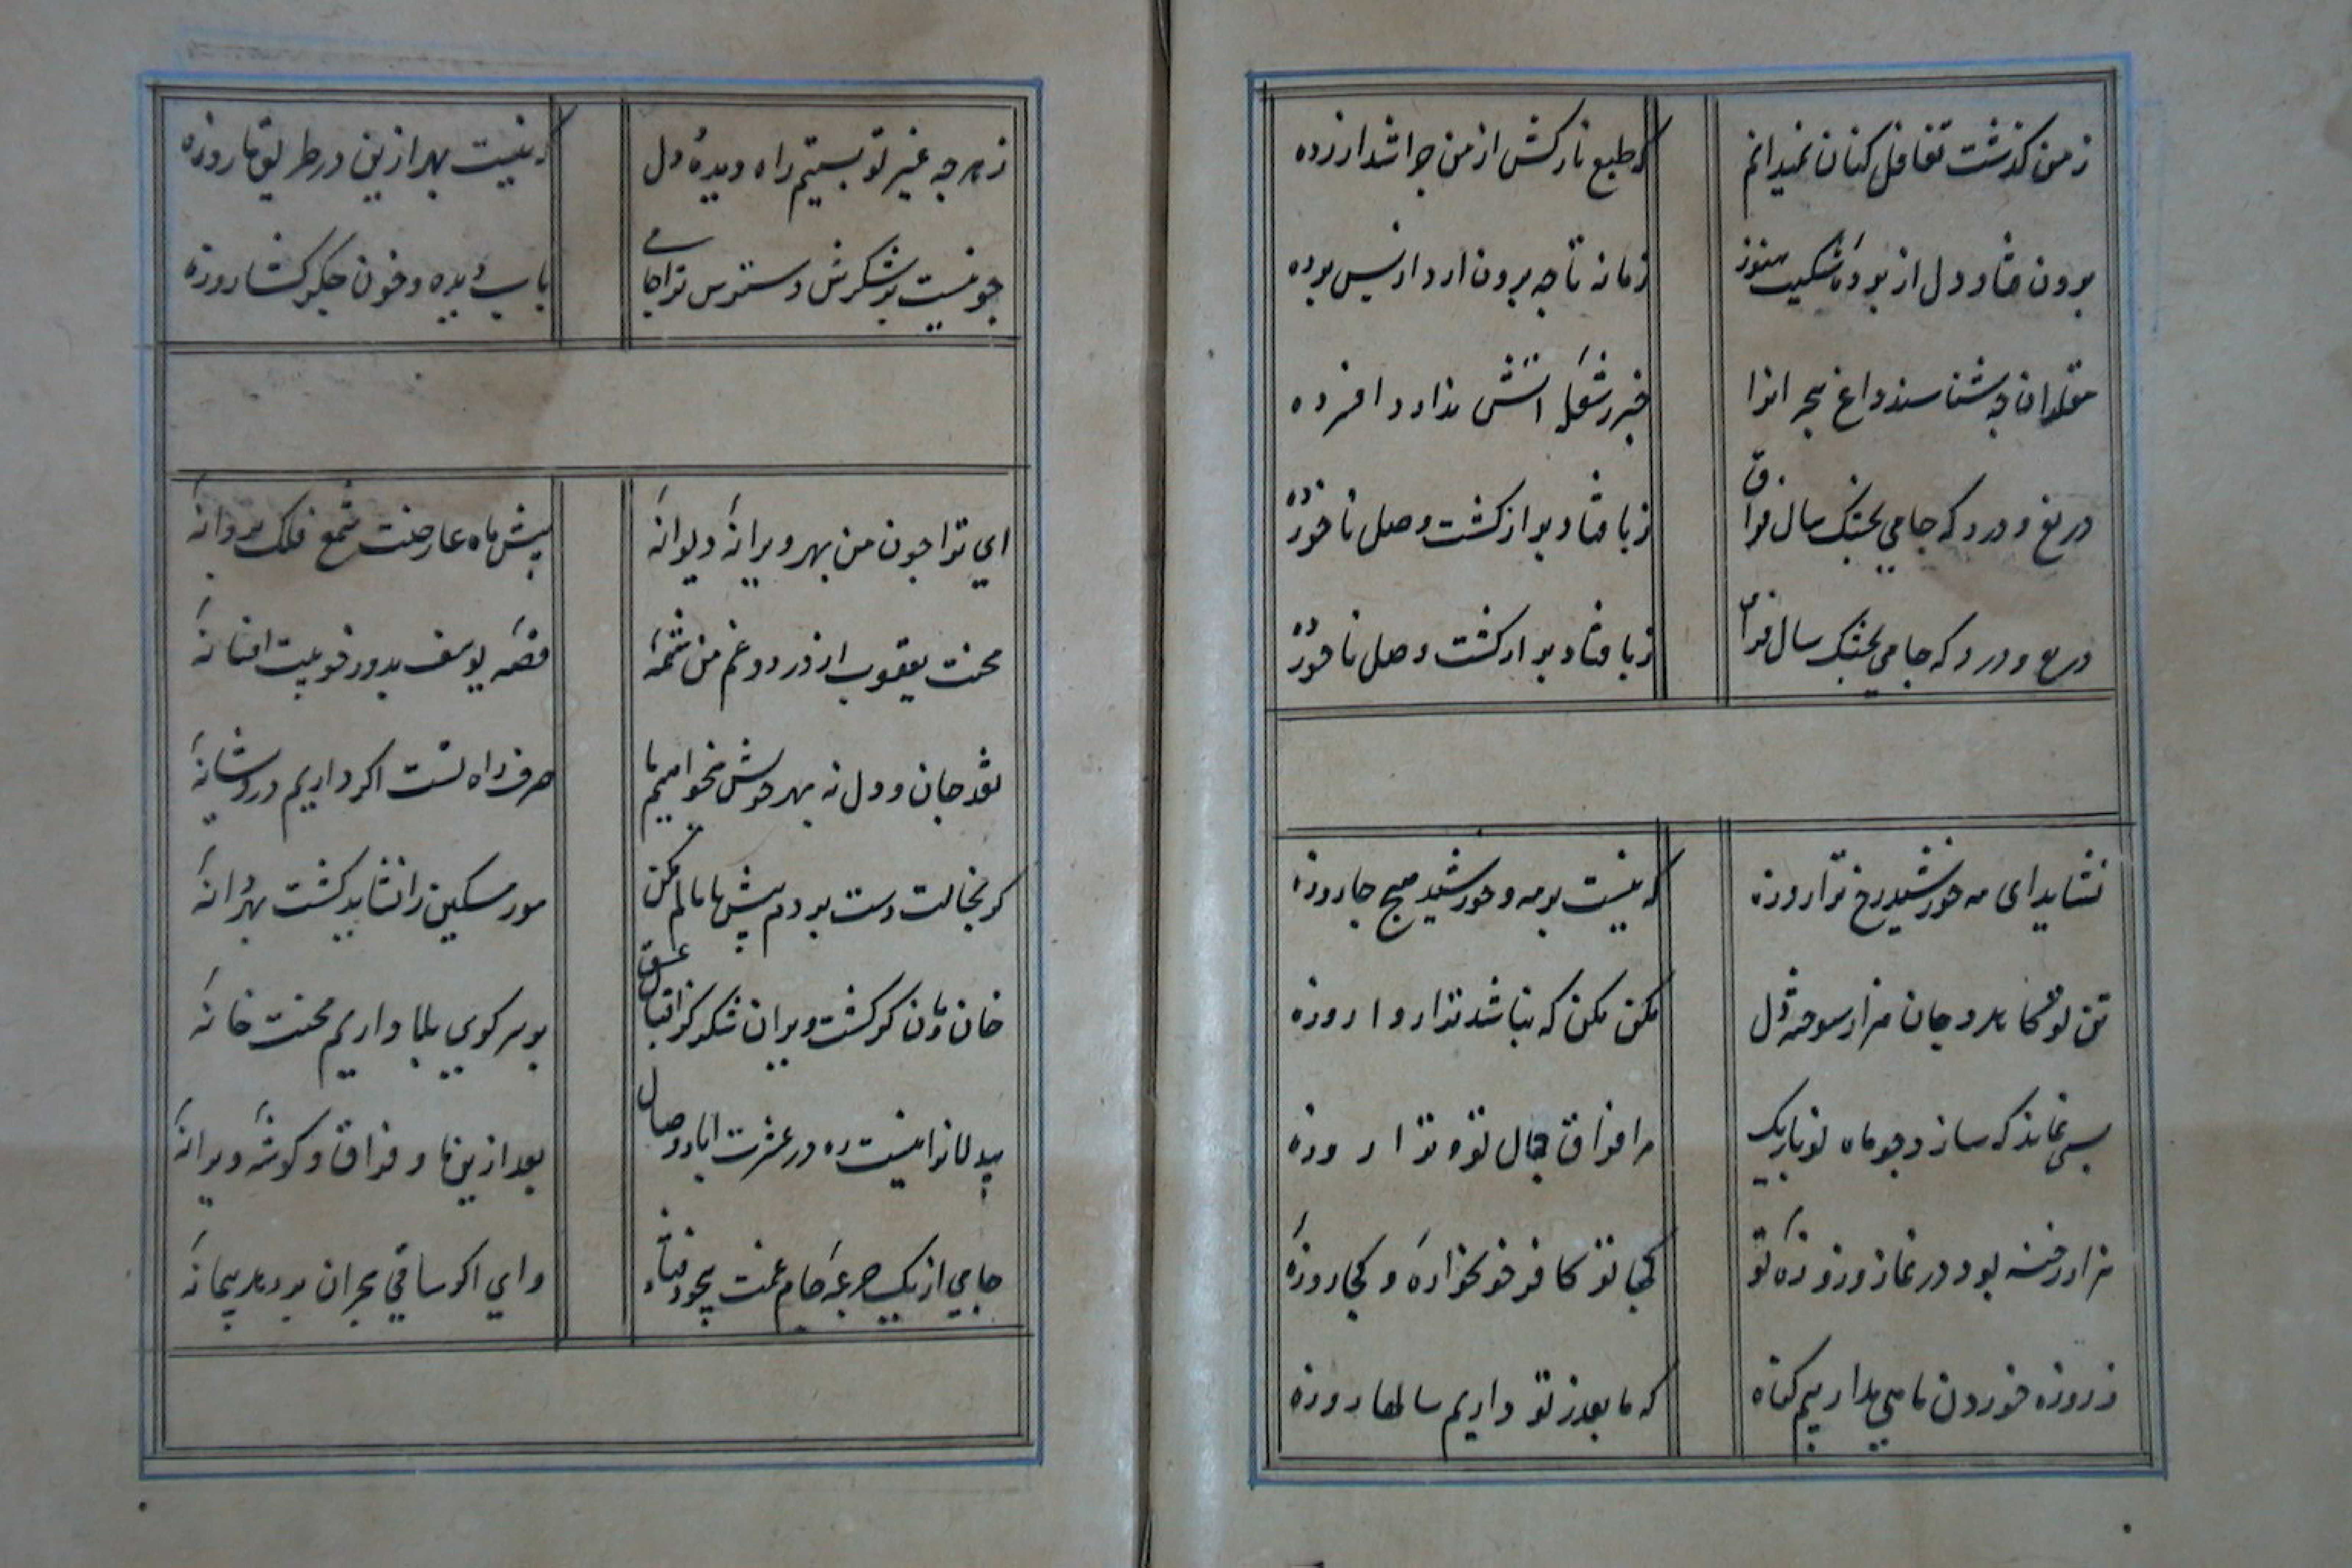 زمن کذشت تغافل کنان نمیدانم
که طبع نازکش از من چرا شد ازرده
برون فتاد دل از پرده شکیب هنوز
زمانه تا چه برون ارد از پس پرده
مقلدان چه شناسند داغ هجرانرا
خبر ز شعله اتش ندارد افسرده
دریغ و درد که جامی بخشک سال فراق
زپا فتاد و بر از کشت وصل ناخورده
دریغ و درد که جامی بخشک سال فراق
زپا فتاد و بر از کشت وصل ناخورده
نشاید ای مه خورشید رخ ترا روزه
که نیست بر مه و خورشید هیچ جا روزه
تن تو کاهد و جان هزار سوخته دل
مکن مکن که نباشد ترا روا روزه
بسی نماند که سازد چو ماه نو باریک
مرا فراق جمال تو و ترا روزه
هزار رخنه بود در نماز و روزه تو
کجا تو کافر خونخواره و کجا روزه
ز روزه خوردن ما می مدار هیچ کناه
که ما بعد ز تو داریم سالها روزه
ز هر چه غیر تو بستیم راه دیده و دل
که نیست بهر ازین در طریق ما روزه
چو نیست بر شکرش دسترس ترا جامی
باب دیده و خون جکر کشا روزه
ای ترا چون من بهر ویرانه دیوانه
پیش ماه عارضت شمع فلک پروانه
محنت یعقوب از درد و غم من شمه
قصه یوسف بدور خوبیت افسانه
نقد جان و دل نه بهر خویش میخواهیم ما
صرف راه تست اکر داریم درویشانه
کر بخالت دست بردم پیش پامالم مکن
مور مسکین را نشاید کشت بهر دانه
خان و مان کر کشت ویران شکر کز اقبال عشق
بر سر کوی بلا داریم محنت خانه
بیدلانرا نیست ره در عشرت اباد وصال
بعد ازین ما و فراق و کوشه ویرانه
جامی از یک جرعه جام غمت بیخود فتاد
وای اکر ساقی هجران پر دهد پیمانه